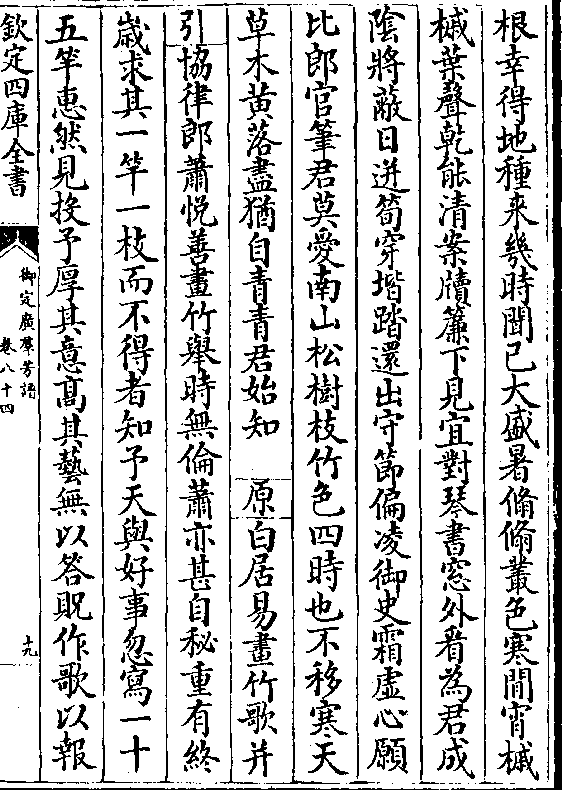 根幸得地種来幾時聞已大盛暑翛翛叢色寒閒宵槭
槭葉聲乾能清案牘簾下見宜對琴書窓外看為君成
陰將蔽日迸筍穿堦踏還出守節偏凌御史霜虛心願
比郎官筆君莫愛南山松樹枝竹色四時也不移寒天
草木黄落盡猶自青青君始知　原白居易畫竹歌并
引協律郎蕭悅善畫竹舉時無倫蕭亦甚自秘重有終
歲求其一竿一枝而不得者知予天與好事忽寫一十
五竿惠然見投予厚其意髙其藝無以答貺作歌以報
欽定四庫全書
御定廣羣芳譜
卷八十四
十九